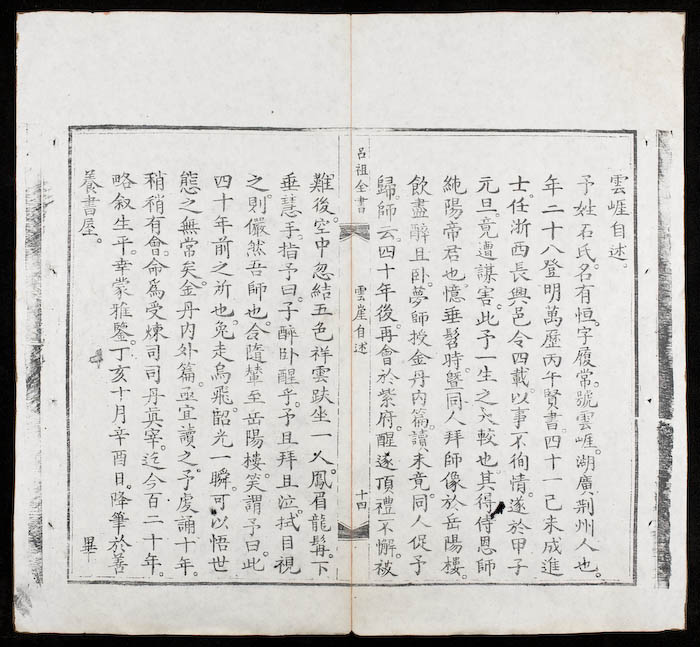 雲崕自述。
予姓石氏。名有恒。字履常。號雲崕。湖廣荆州人也。
年二十八登明萬歷丙午賢書。四十一己未成進
士。任浙西長興邑令四載。以事不徇情。遂於甲子
元旦。竟遭謀害。此予一生之大較也。其得侍恩師
純陽帝君也。憶垂髫時。曁同人拜師像於岳陽樓。
飲盡醉且卧。夢師授金丹内篇。讀未竟。同人促予
歸。師云。四十年後。再會於紫府。醒遂頂禮不懈。被
呂祖全書
雲崖自述
十四
難後。空中忽結五色祥雲。趺坐一人。鳳眉龍髯。下
垂慧手。指予曰。子醉卧醒乎。予且拜且泣。拭目視
之。則儼然吾師也。令隨輦至岳陽樓。笑謂予曰。此
四十年前之所也。兔走烏飛。韶光一瞬。可以悟世
態之無常矣。金丹内外篇。亟宜讀之。予虔誦十年。
稍稍有會。命爲受煉司司丹眞宰。迄今百二十年。
略叙生平。幸蒙雅鑒。丁亥十月辛酉日。降筆於善
養書屋。
畢